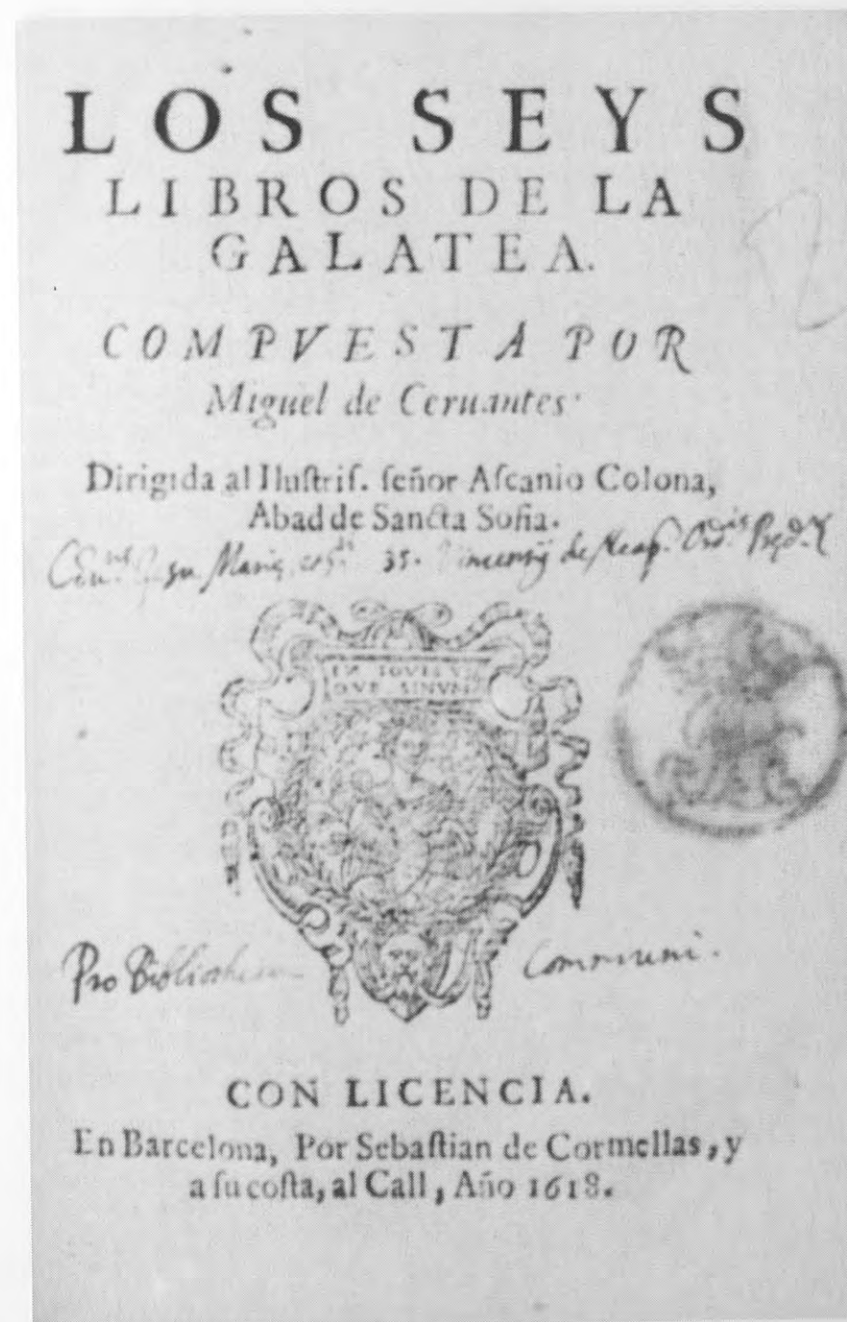 LOS SEYS
LIBROS DE LA
GALATEA.
COMPVESTA POR
Miguel de Ceruantes.
Dirigida al Iluſtriſ. ſeñor Aſcanio Colona,
Abad de Sancta Sofia.
35. de
SINVM
Pro Communi.
CON LICENCIA.
En Barcelona, Por Sebaſtian de Cormellas, y
a ſu coſta, al Call, Año 1618.